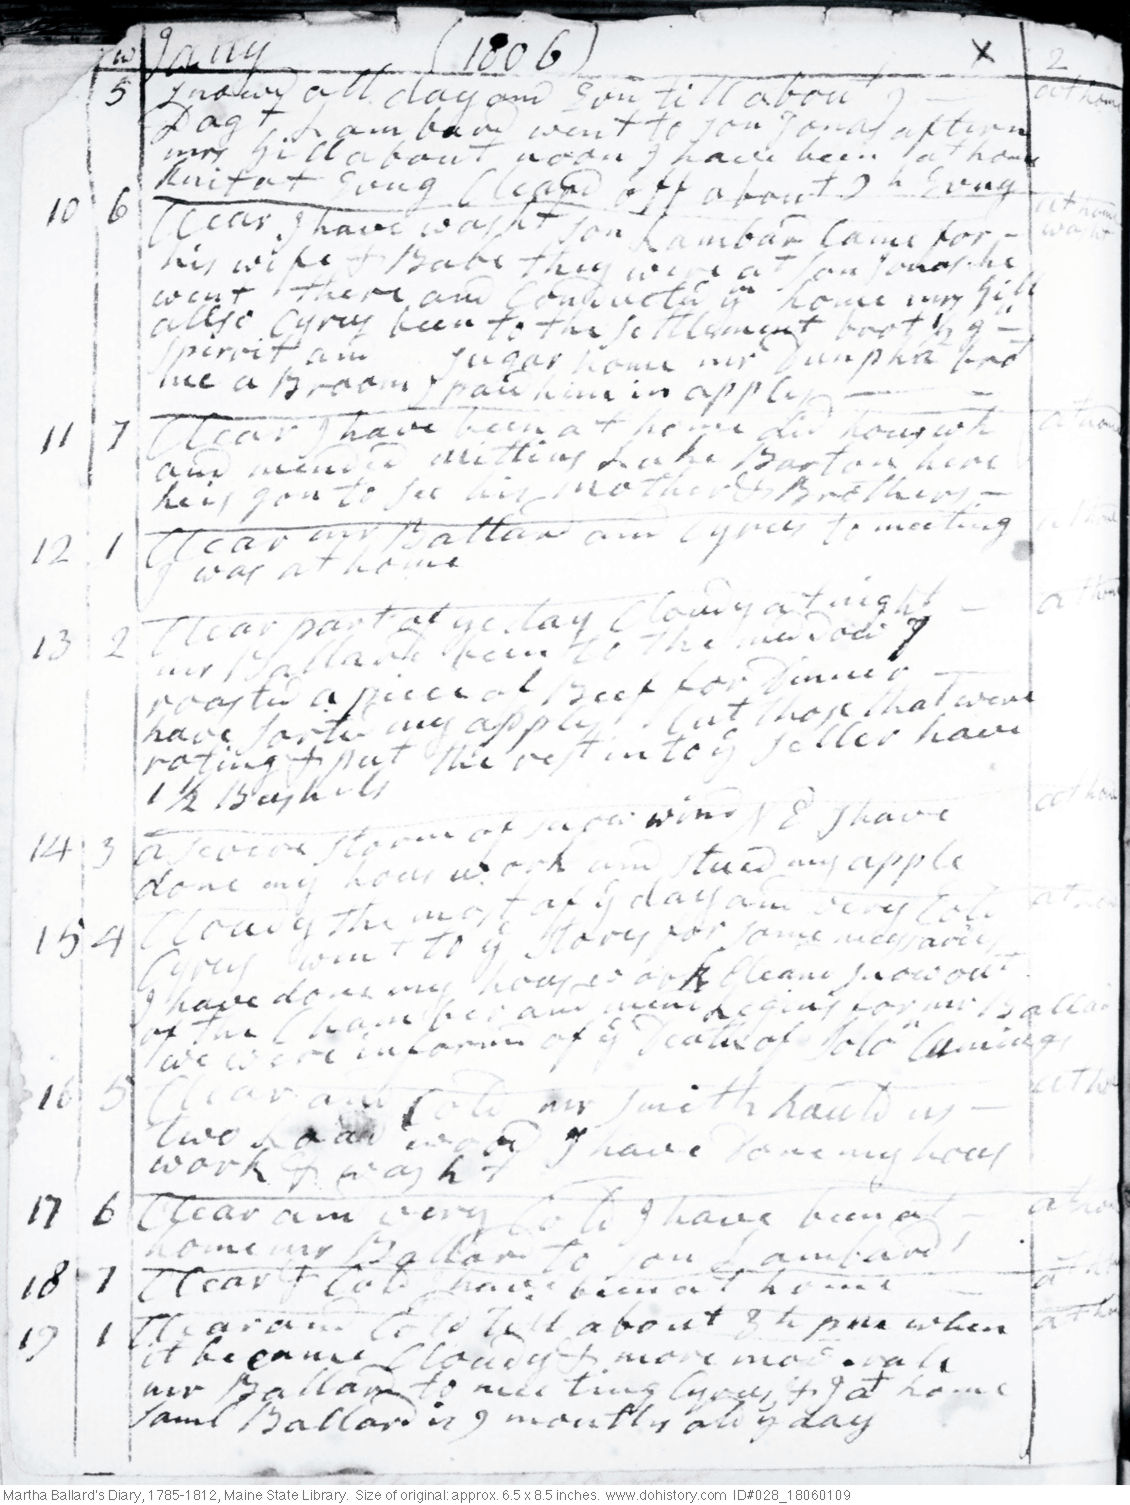 w Jany (1806) x 2
5 Snowd all day and Evn till about 9 — at home
Dagt Lambard went to son Jonas aftern
mrs Gill about noon I have been at home
Knit at Evng Cleard off about 9 h Evng
10 6 Clear I have washt son Lambard Came for — at home
his wife & Babe they were at son Jonas he washt
went there and Conducted ym home mrs Gill
allso Cyrus been to the settlement bort 
spirrit and sugar home mr Dunpha bro't
me a Broom I paid him in apples — —
11 7 Clear I have been at home did houswk at home
and mended mittins Luke Barton here
he is gon to see his mother & Brothers —
12 1 Clear mr Ballard and Cyrus to meeting at home
I was at home
13 2 Clear part of ye day Cloudy at night — at home
mr Ballard been to the medow I
roasted a piece of Beef for Dinner —
have sorted my apples Cut those that were
roting & put the rest into ye seller have
1 1/2 Bushels
14 3 a severe storm of snow wind N E I have at home
done my hous work and stued my apple
15 4 Cloudy the most of ye day and very Cold at home
Cyrus went to ye stores for some nessaries
I have done my house work Cleand snow out
of the Chamber and mend Legins for mr Ballard
we were informd of ye Death of Solon Cumings
16 5 Clear and Cold mr Smith hauld us — at home
two Load wood I have Done my hous
work & washt
17 6 Clear and very Cold I have been at — at home
home mr Ballard to son Lambards
18 7 Clear & Cold I have been at home — at home
19 1 Clear and Cold till about 3 h pm when at home
it became Cloudy & more moderate
mr Ballard to meeting Cyrus & I at home
Saml Ballard is 9 months old ys day
Martha Ballard's Diary, 1785-1812, Maine State Library. Size of original: approx. 6.5 x 8.5 inches. www.dohistory.com ID#028_18060109